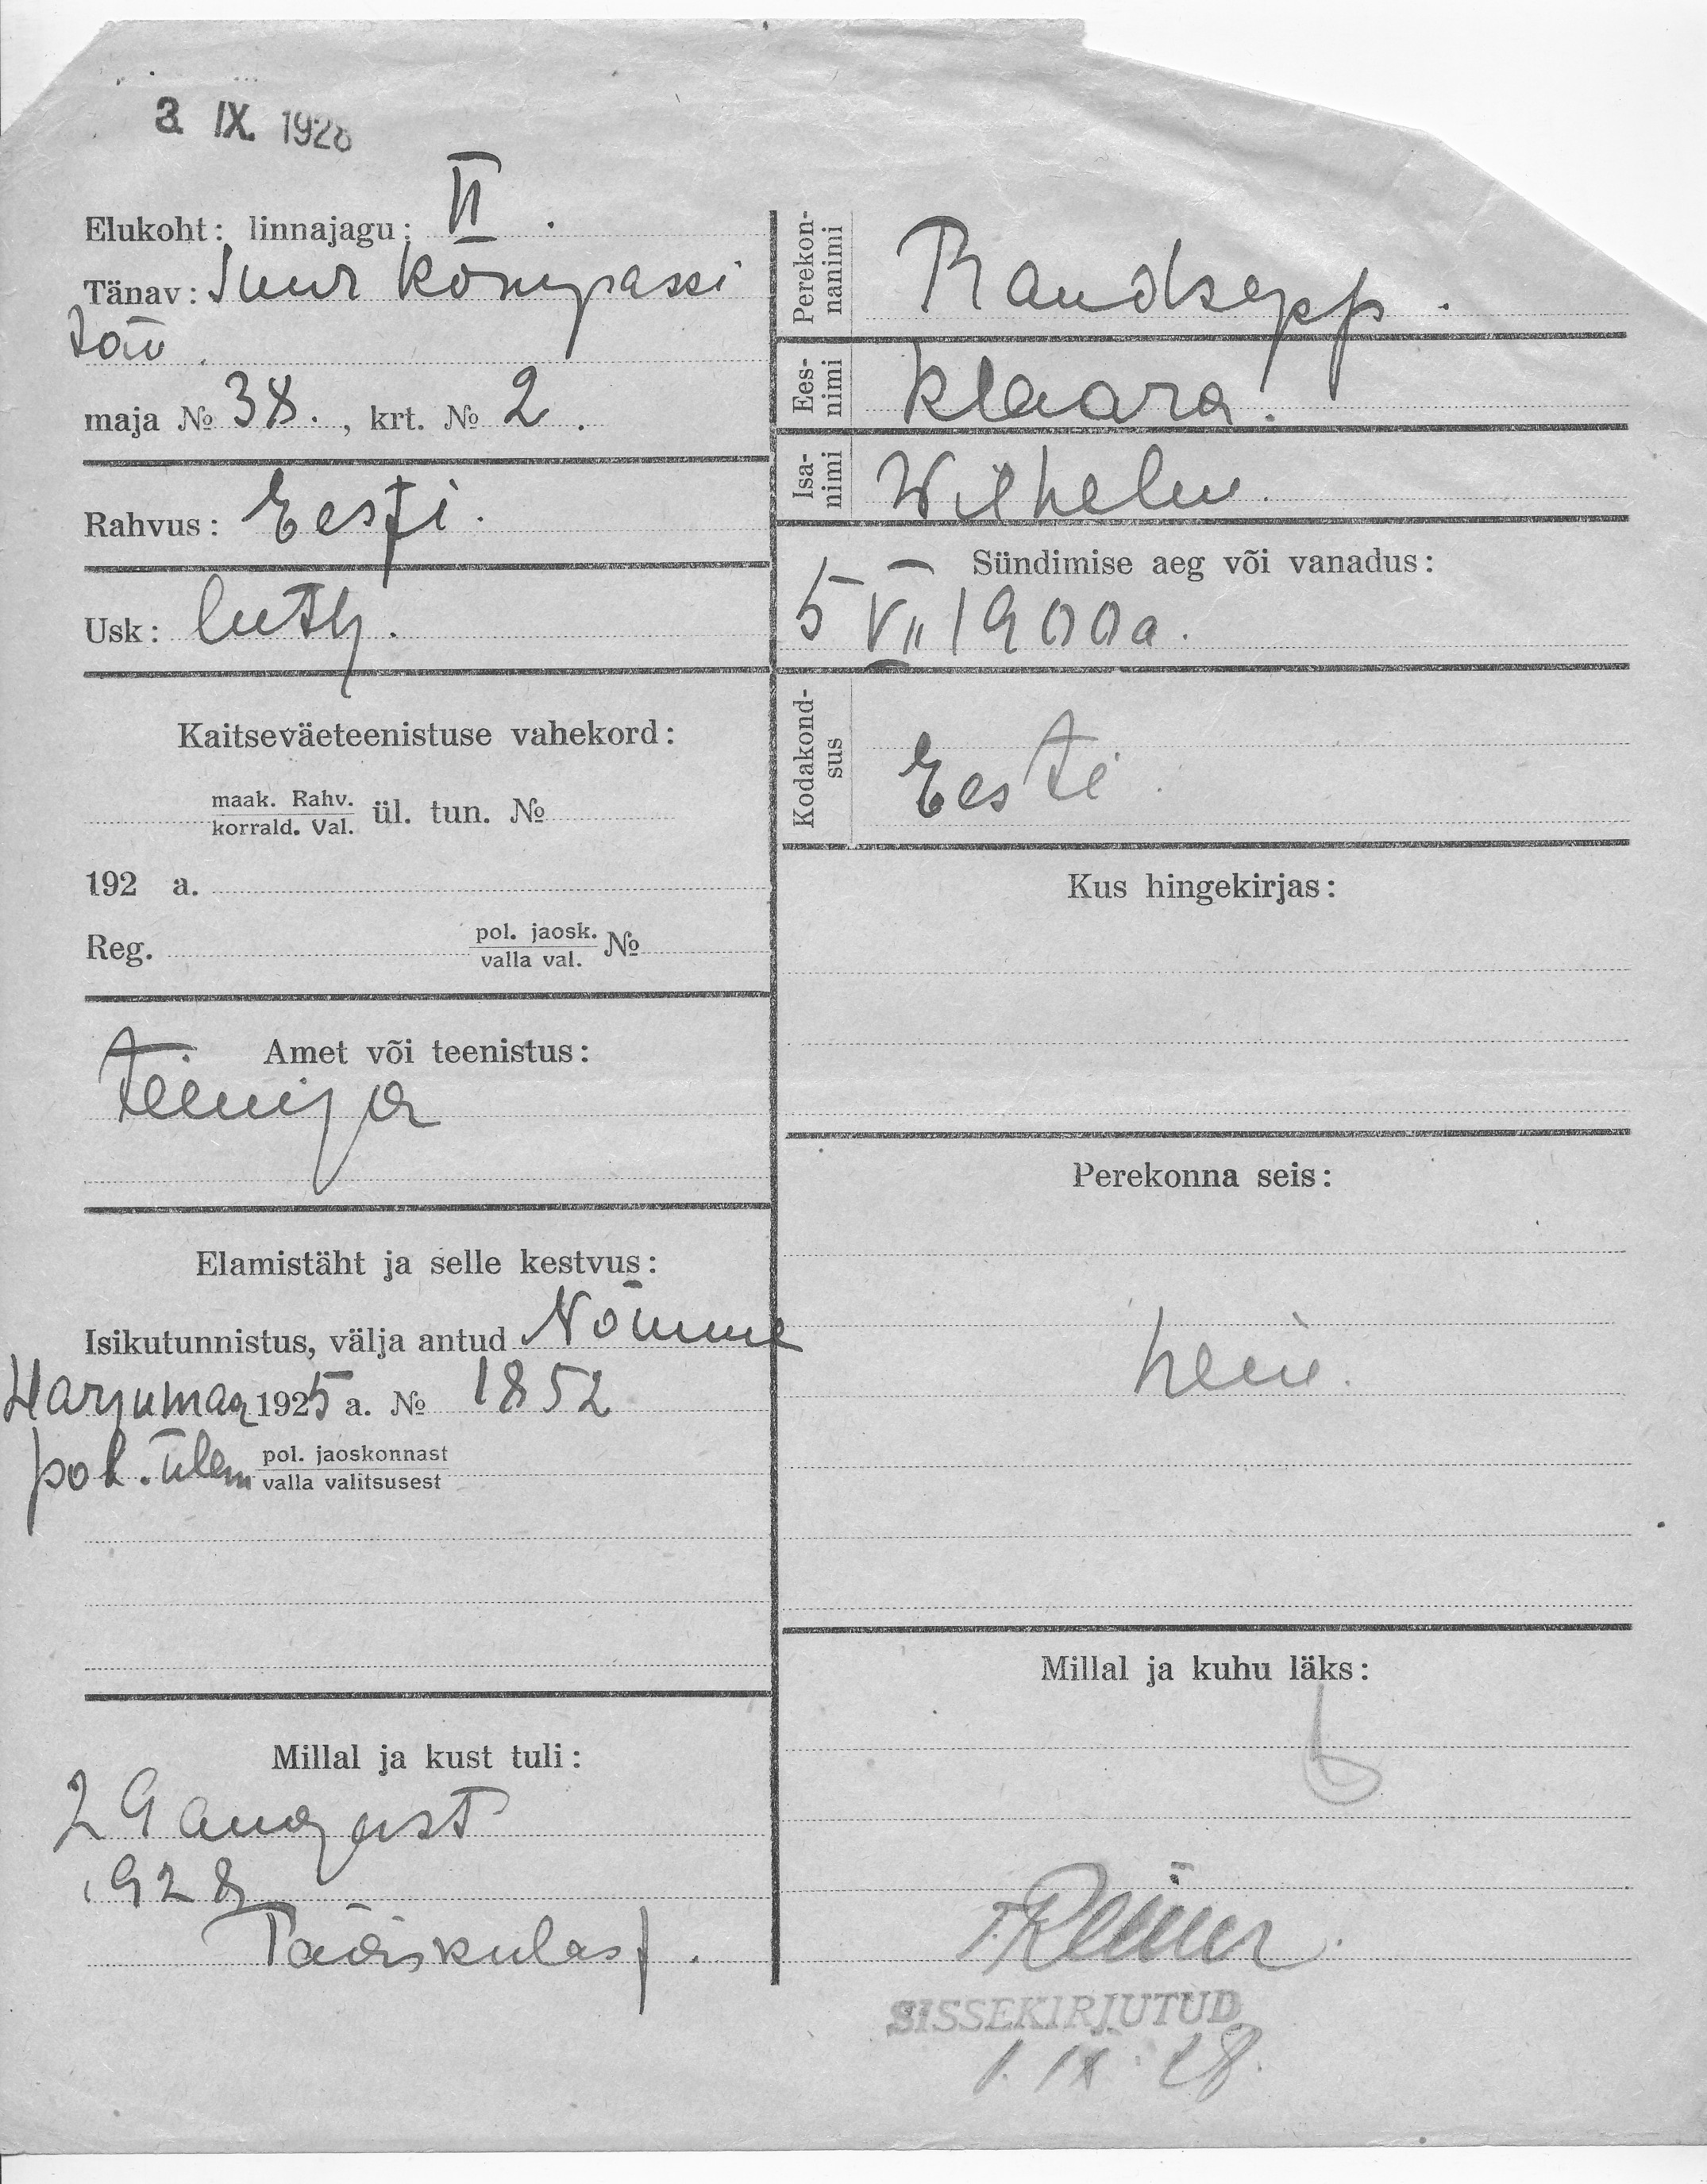 3. IX. 1928
Elukoht: linnajagu: II.
Tänav: Suur Kompassi
tän.
maja № 38., krt. № 2.
Rahvus: Eesti.
Usk: luth.
Kaitseväeteenistuse vahekord:
maak. Rahv.
korrald. Val. ül. tun. №
192 a.
Reg. pol. jaosk. №
valla val.
Amet või teenistus:
teenija
Elamistäht ja selle kestvus:
Isikutunnistus, välja antud Nõmme
Harjumaa 1925 a. № 1852
pol. ülem pol. jaoskonnast
valla valitsusest
Millal ja kust tuli:
29 august
1928
Pääskülast.
Perekon-
nanimi Raudsepp.
Ees-
nimi Klaara.
Isa-
nimi Wilhelm.
Sündimise aeg või vanadus:
5 VII 1900a.
Kodakond-
sus Eesti.
Kus hingekirjas:
Perekonna seis:
Millal ja kuhu läks:
SISSEKIRJUTUD
1. IX. 28.